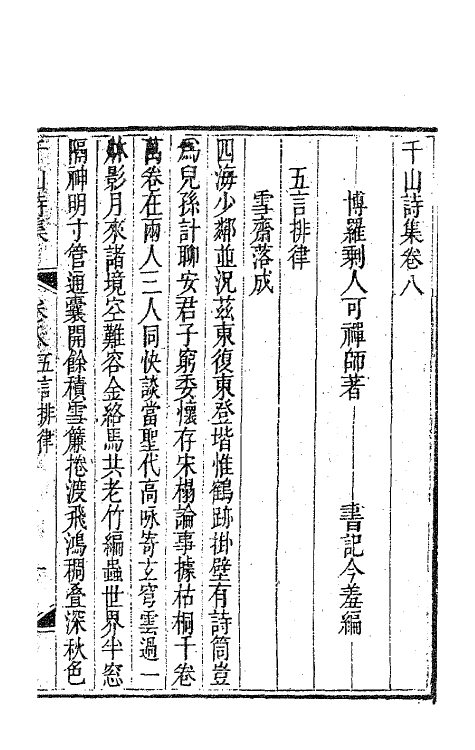 千山詩集卷八
博羅剩人可禪師著 書記今羞編
五言排律
雪齋落成
四海少鄰並況茲東復東登堦惟鶴跡掛壁有詩筒豈
為兒孫計聊安君子窮委懷存宋榻論事據枯桐千卷
萬卷在兩人三人同快談當聖代高咏寄玄穹雲過一
林影月來諸境空難容金絡馬共老竹編蟲世界半窓
隔神明寸管通囊開餘積雪簾捲渡飛鴻稠叠深秋色
千山詩集 卷八 五言排律 一